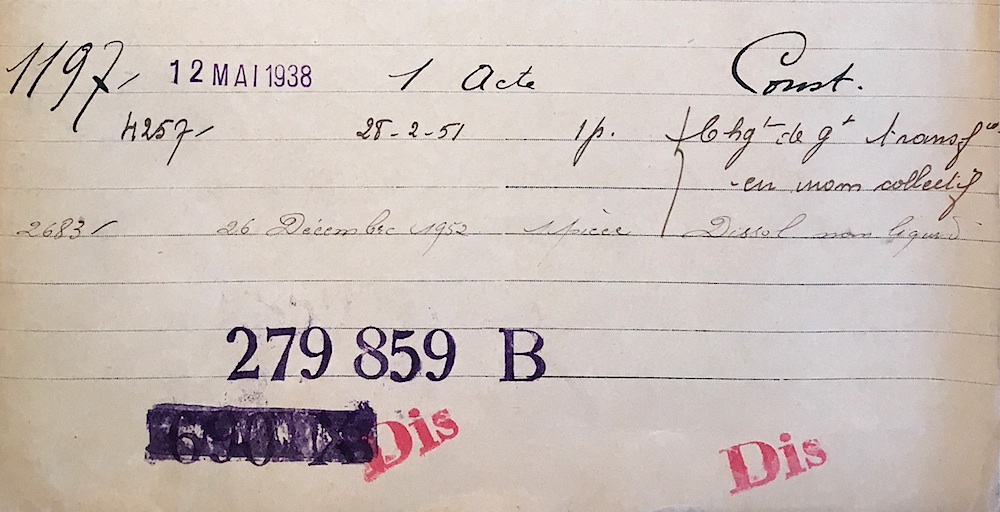 1197 12 MAI 1938 1 Acte Const.
4257 28-2-51 1 p. Chgt de gt transfon
en nom collectif
2683 26 Décembre 1952 1 pièce Dissol non liquid
279 859 B
690 Dis
Dis